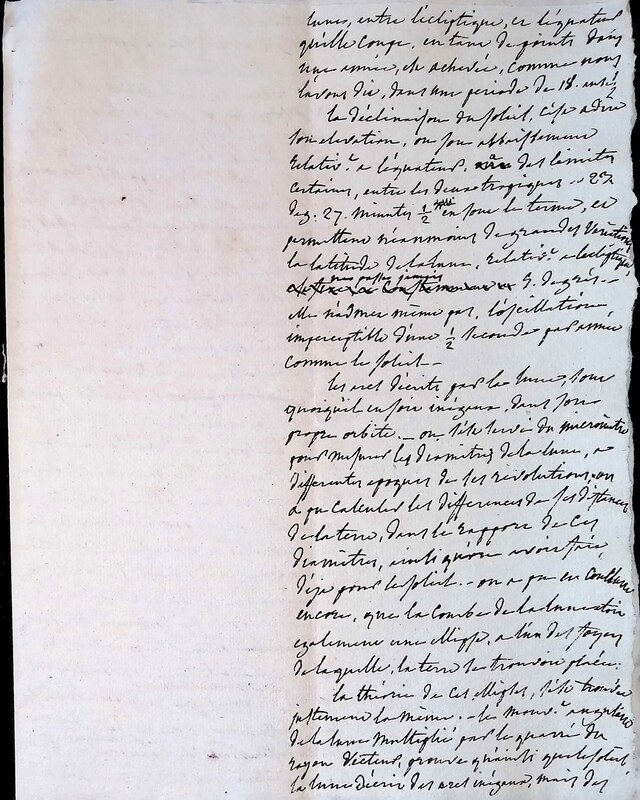 lunes, entre l'écliptique, et l'équateur
qu'elle coupe, en tant de points dans
une année, est achevée, comme nous
l'avons dit, dans une periode de 18. années
la déclinaison du soleil, c'est a dire
son elevation, ou son abbaissement
Relativ.t a l'équateur, a des limites
certaines, entre les deux tropiques. - 23
deg. 27. minutes 1/2 en sont le terme, et
permettent néanmoins de grandes Variations
la latitude de la lune, Relativ.t a l'ecliptique
ne passe jamais 5. degrés. -
elle n'admet même pas, l'oscillation,
imperceptible d'une 1/2 seconde par année
comme le soleil -
les arcs décrits par la lune, sont
quoiqu'il en soit inégaux, dans son
propre orbite. - on s'est servi du micromètre
pour mesurer les diametres de la lune, a
differentes epoques de ses révolutions. on
a pu calculer les differences de ses distances
de la terre, dans le rapport de ces
diamètres, ainsi qu'on avoit fait,
déja pour le soleil. - on a pu en conclure
encore, que la courbe de la lune etoit
egalement une ellipse, a l'un des foyers
de laquelle, la terre se trouvoit placée.
la théorie de ces ellipses, s'est trouvée
justement la même. - les mouv.ts angulaire
de la lune multiplié par le quarré du
rayon vecteur, prouve qu'ainsi que le soleil
la lune décrit des arcs inégaux, mais des